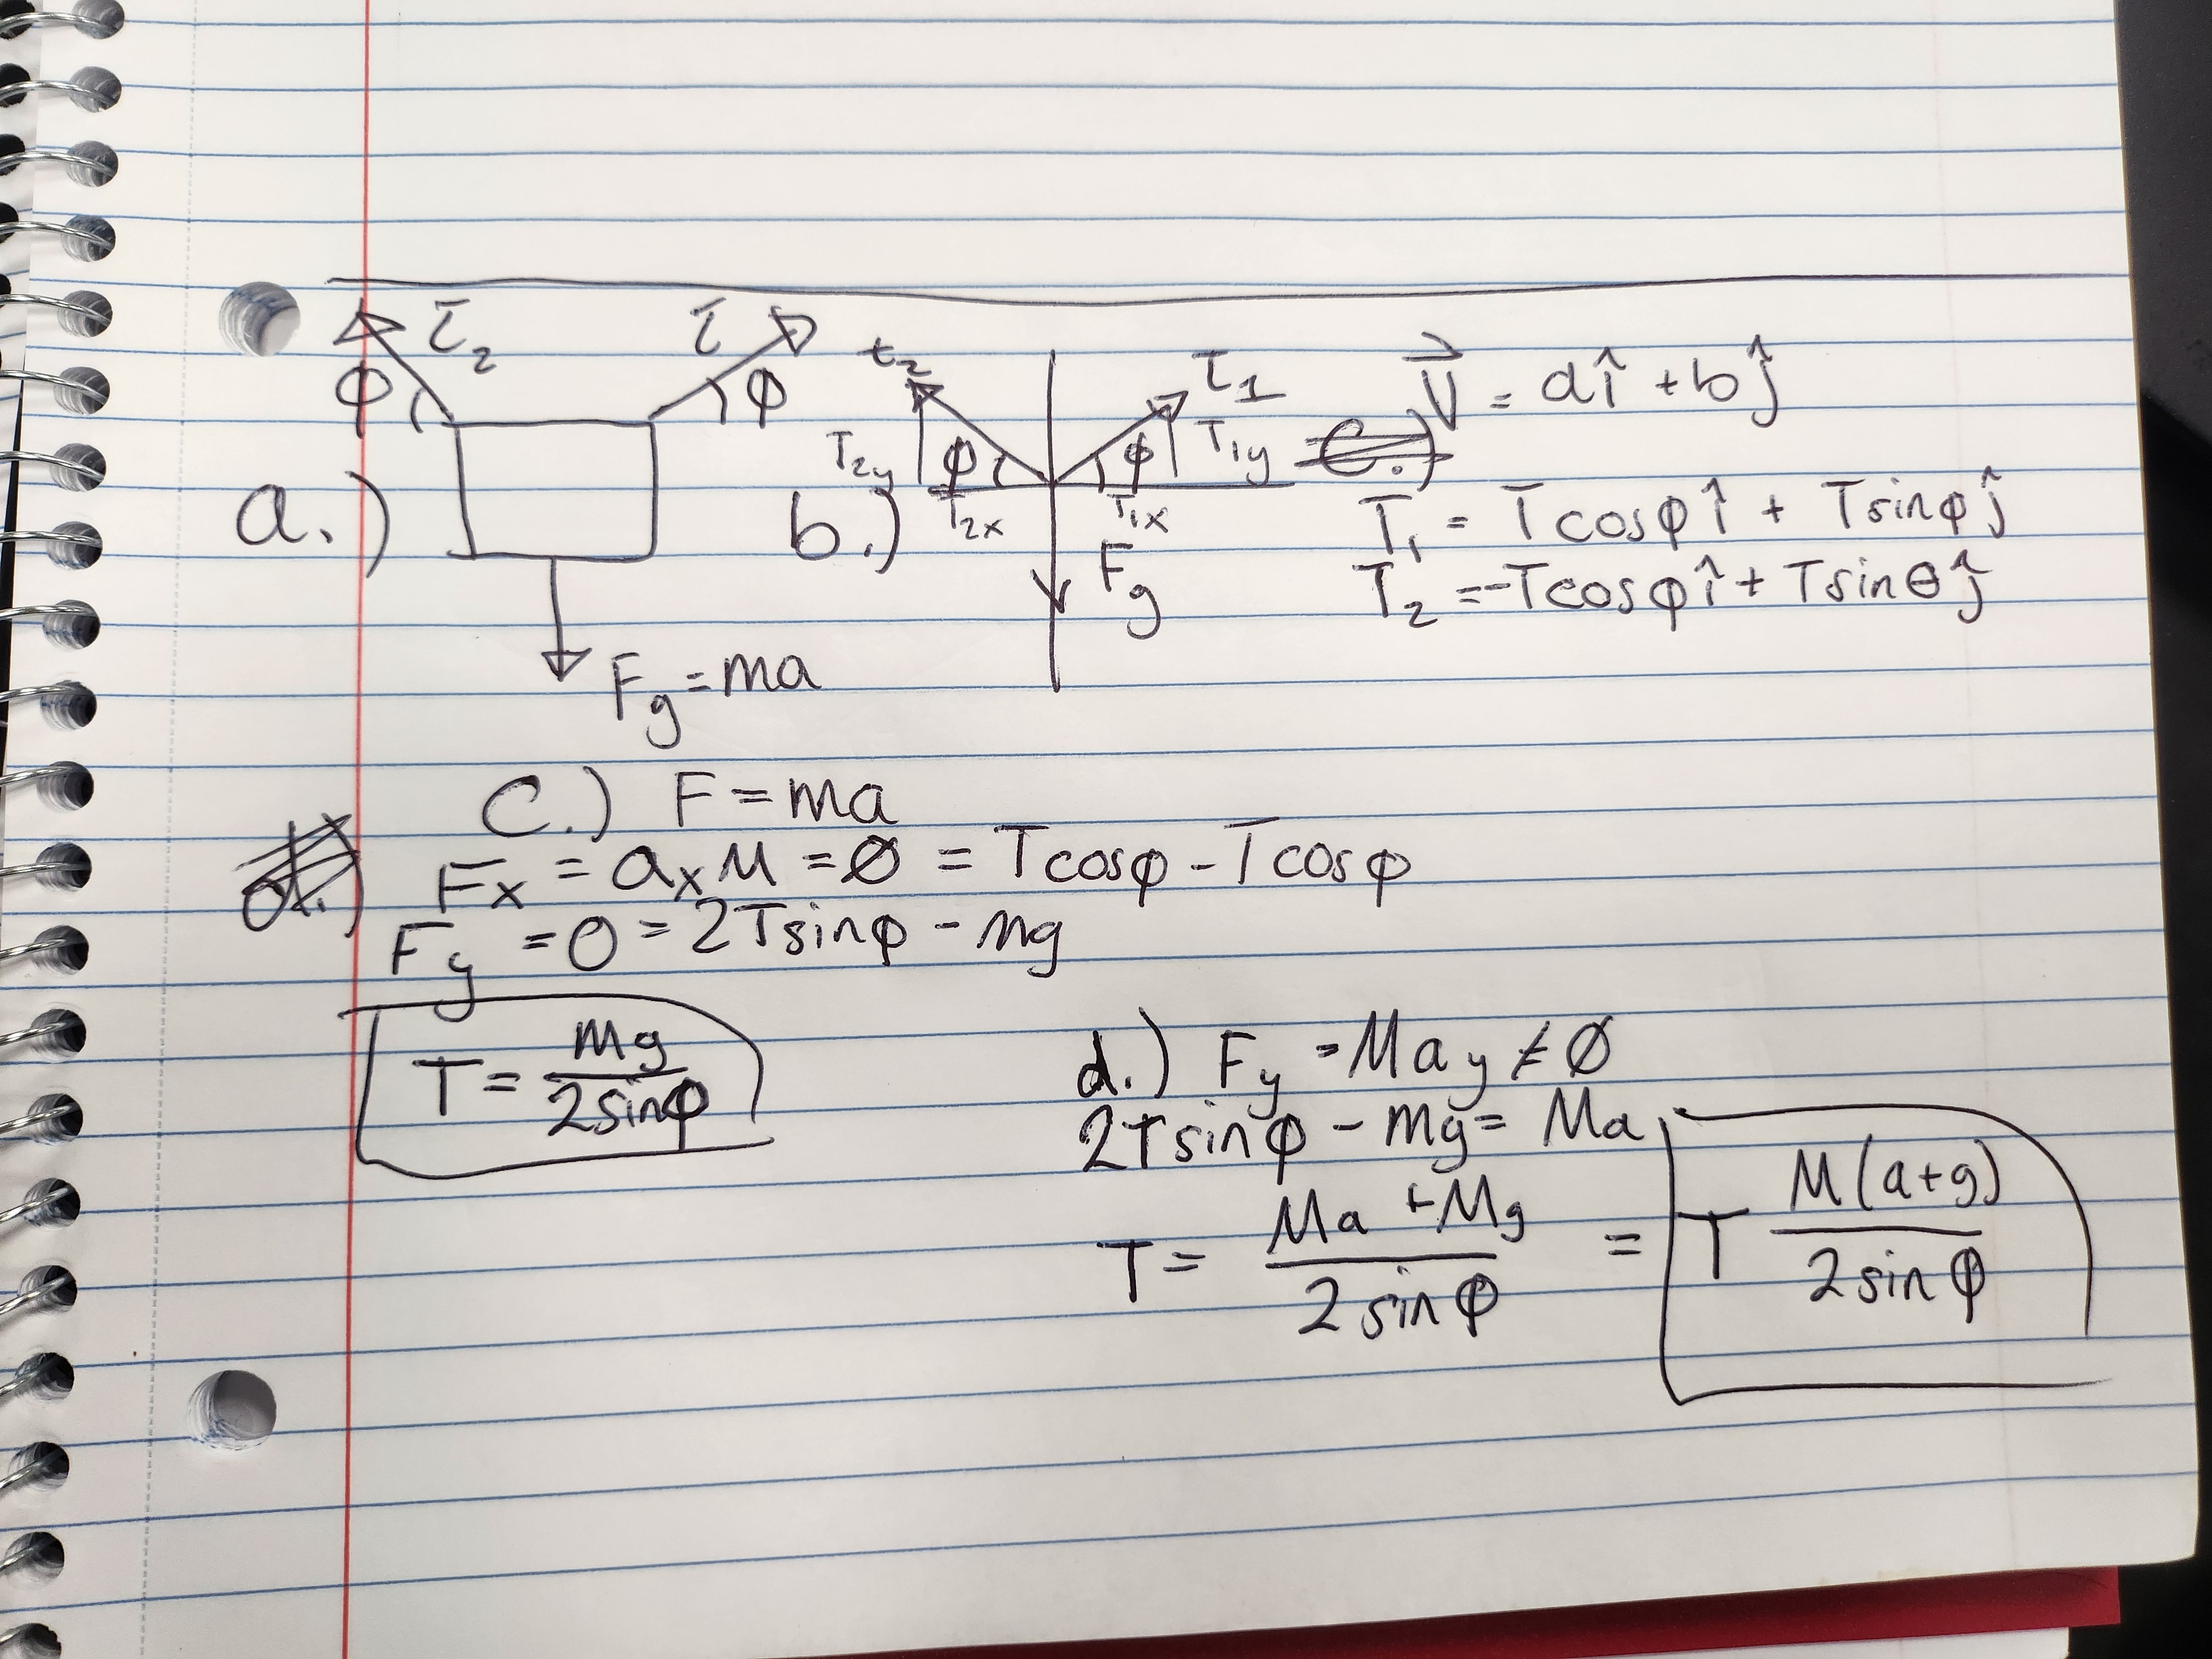 τ₂ τ
φ φ
a.)
F_g = ma
b.)
t₂ τ₁
T₂y φ φ T₁y
T₂x T₁x
F_g
V⃗ = aî + bĵ
T₁ = Tcosφî + Tsinφĵ
T₂ = -Tcosφî + Tsinθĵ
C.) F = ma
Fx = axM = Ø = Tcosφ - Tcosφ
Fy = 0 = 2Tsinφ - Mg
T = mg / 2sinφ
d.) Fy = May ≠ Ø
2Tsinφ - mg = Ma
T = Ma + Mg / 2sinφ = T M(a+g) / 2sinφ